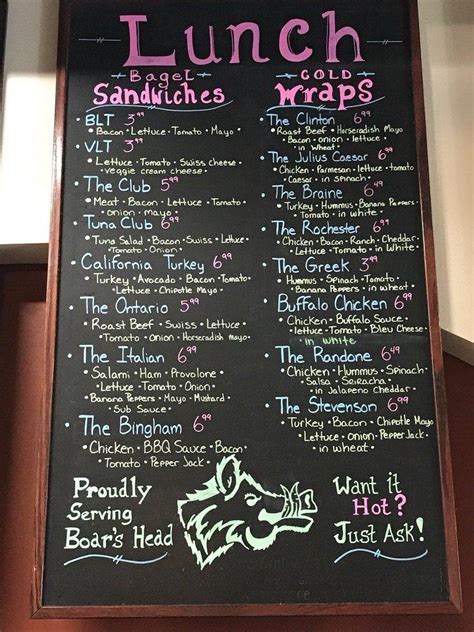 Lunch
Bagel
Sandwiches
BLT 3.99
Bacon • Lettuce • Tomato • Mayo
VLT 3.99
Lettuce • Tomato • Swiss cheese •
veggie cream cheese
The Club 5.99
Meat • Bacon • Lettuce • Tomato
• onion • mayo
Tuna Club 6.99
Tuna Salad • Bacon • Swiss • Lettuce
• Tomato • Onion
California Turkey 6.99
Turkey • Avocado • Bacon • Tomato
• Lettuce • Chipotle Mayo
The Ontario 5.99
Roast Beef • Swiss • Lettuce •
Tomato • Onion • Horseradish mayo
The Italian 6.99
Salami • Ham • Provolone
• Lettuce • Tomato • Onion •
Banana Peppers • Mayo • Mustard •
Sub Sauce
The Bingham 6.99
Chicken • BBQ Sauce • Bacon
Tomato • Pepper Jack
Cold
Wraps
The Clinton 6.99
Roast Beef • Horseradish Mayo
• Bacon • onion • lettuce •
in Wheat
The Julius Caesar 6.99
Chicken • Parmesan • lettuce • tomato
Caesar • in Spinach
The Braine 6.99
Turkey • Hummus • Banana Peppers
• Tomato • in white
The Rochester 6.99
Chicken • Bacon • Ranch • Cheddar
• Lettuce • Tomato • in White
The Greek 3.99
Hummus • Spinach • Tomato •
Banana Peppers • in wheat
Buffalo Chicken 6.99
Chicken • Buffalo Sauce •
lettuce • Tomato • Bleu Cheese
in white
The Randone 6.99
Chicken • Hummus • Spinach •
Salsa • Sriracha •
in Jalapeno Cheddar
The Stevenson 6.99
Turkey • Bacon • Chipotle Mayo
Lettuce • Onion • Pepper Jack
in wheat
Proudly
Serving
Boar's Head
Want it
Hot?
Just Ask!